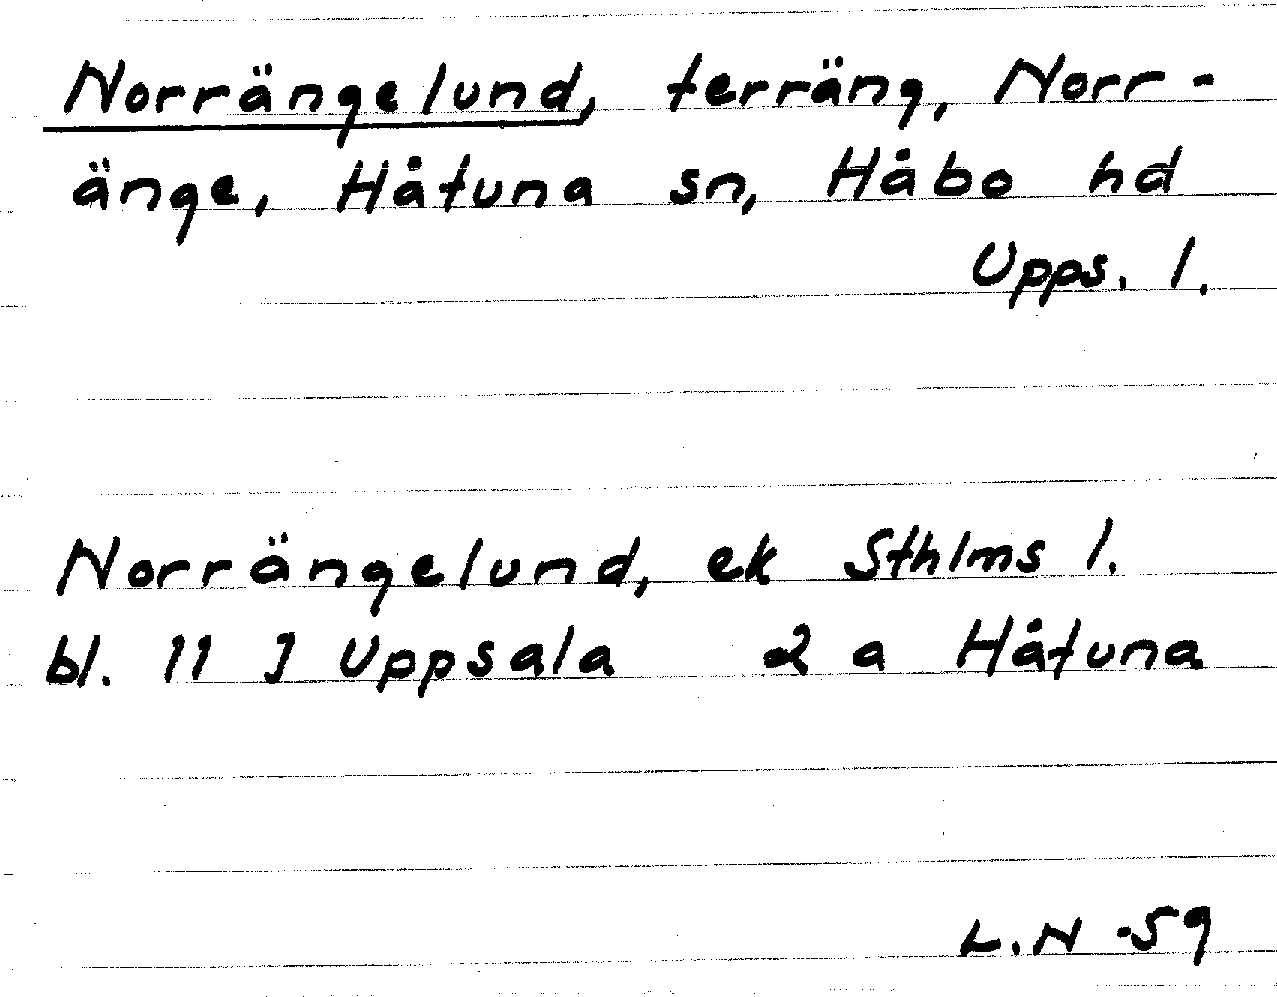 Norrängelund, terräng, Norr-
änge, Håtuna sn, Håbo hd
Upps. l.
Norrängelund, ek Sthlms l.
bl. 11 J Uppsala 2 a Håtuna
L.N -59